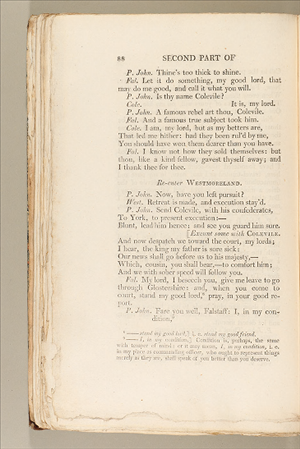 88 SECOND PART OF
P. John. Thine's too thick to shine.
Fal. Let it do something, my good lord, that
may do me good, and call it what you will.
P. John. Is thy name Colevile?
Cole. It is, my lord.
P. John. A famous rebel art thou, Colevile.
Fal. And a famous true subject took him.
Cole. I am, my lord, but as my betters are,
That led me hither: had they been rul'd by me,
You should have won them dearer than you have.
Fal. I know not how they sold themselves: but
thou, like a kind fellow, gavest thyself away; and
I thank thee for thee.
Re-enter WESTMORELAND.
P. John. Now, have you left pursuit?
West. Retreat is made, and execution stay'd.
P. John. Send Colevile, with his confederates,
To York, to present execution:—
Blunt, lead him hence; and see you guard him sure.
[Exeunt some with COLEVILE.
And now despatch we toward the court, my lords;
I hear, the king my father is sore sick:
Our news shall go before us to his majesty,—
Which, cousin, you shall bear,—to comfort him;
And we with sober speed will follow you.
Fal. My lord, I beseech you, give me leave to go
through Glostershire: and, when you come to
court, stand my good lord, pray, in your good re-
port.
P. John. Fare you well, Falstaff: I, in my con-
dition,
—stand my good lord,] i. e. stand my good friend.
—I, in my condition,] Condition is, perhaps, the same
with temper of mind: or it may mean, I, in my condition, i. e.
in my place as commanding officer, who ought to represent things
merely as they are, shall speak of you better than you deserve.